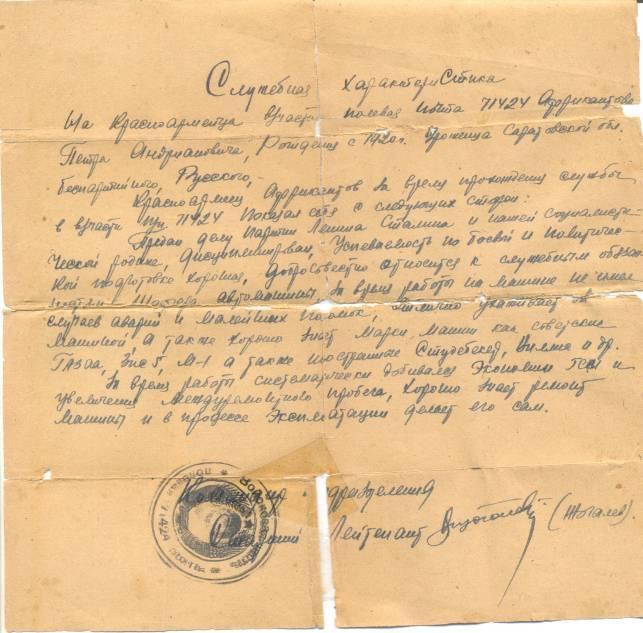 Служебная характеристика
На красноармейца в/части полевая почта 71424 Африкантова
Петра Андриановича, рождения с 1920 г. уроженца Саратовской обл.
беспартийного, Русского,-
Красноармеец Африкантов за время прохождения службы
в в/части п/п 71424 показал себя с следующих сторон:
Предан делу партии Ленина Сталина и нашей социалисти-
ческой родине Дисцыплинирован, Успеваемость по боевой и политичес-
кой подготовке хорошая, добросовестно относится к служебным обязан
ностям Шофера автомашины. За время работы на машине не имел
случаев аварий и малейших поломок, отлично ухаживает за
машиной а также хорошо знает марки машин как советские
ГАЗаа, Зис 5, М-1 а также иностранные Студебекер, Виллис и др.
За время работы систематически добивался экономии ГСМ и
увеличения междуремонтного пробега, хорошо знает ремонт
машины и в процессе эксплатации делает его сам.
подразделения
Лейтенант (Жогалев).
71424